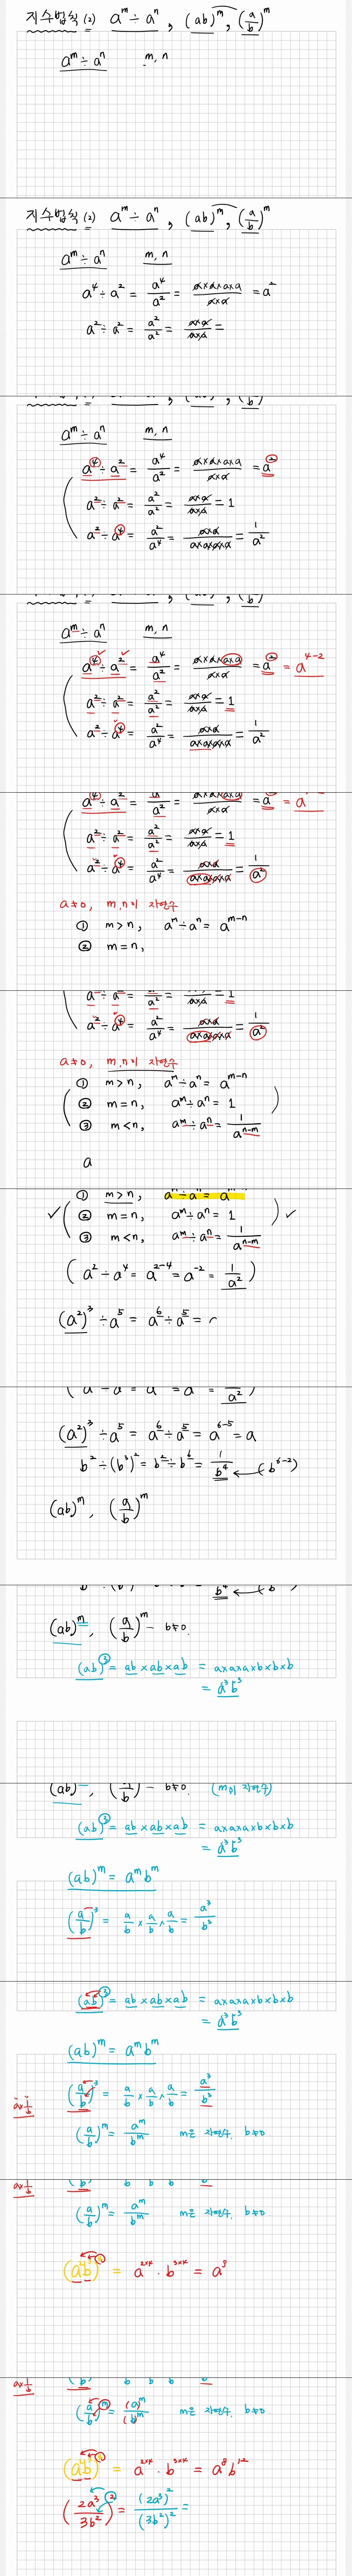 지수법칙 (2) a^m ÷ a^n , (ab)^m , (a/b)^m
a^m ÷ a^n m, n
지수법칙 (2) a^m ÷ a^n , (ab)^m , (a/b)^m
a^m ÷ a^n m, n
a^4 ÷ a^2 = a^4/a^2 = a×a×a×a/a×a = a^2
a^2 ÷ a^2 = a^2/a^2 = a×a/a×a =
a^m ÷ a^n m, n
a^4 ÷ a^2 = a^4/a^2 = a×a×a×a/a×a = a^2
a^2 ÷ a^2 = a^2/a^2 = a×a/a×a = 1
a^2 ÷ a^4 = a^2/a^4 = a×a/a×a×a×a = 1/a^2
a^m ÷ a^n m, n
a^4 ÷ a^2 = a^4/a^2 = a×a×a×a/a×a = a^2 = a^4-2
a^2 ÷ a^2 = a^2/a^2 = a×a/a×a = 1
a^2 ÷ a^4 = a^2/a^4 = a×a/a×a×a×a = 1/a^2
a^4 ÷ a^2 = a^4/a^2 = a×a×a×a/a×a = a^2 = a^4-2
a^2 ÷ a^2 = a^2/a^2 = a×a/a×a = 1
a^2 ÷ a^4 = a^2/a^4 = a×a/a×a×a×a = 1/a^2
a≠0, m,n이 자연수
① m>n, a^m ÷ a^n = a^m-n
② m=n,
a^2 ÷ a^2 = a^2/a^2 = a×a/a×a = 1
a^2 ÷ a^4 = a^2/a^4 = a×a/a×a×a×a = 1/a^2
a≠0, m,n이 자연수
① m>n, a^m ÷ a^n = a^m-n
② m=n, a^m ÷ a^n = 1
③ m<n, a^m ÷ a^n = 1/a^n-m
a
① m>n, a^m ÷ a^n = a^m-n
② m=n, a^m ÷ a^n = 1
③ m<n, a^m ÷ a^n = 1/a^n-m
( a^2 ÷ a^4 = a^2-4 = a^-2 = 1/a^2 )
(a^2)^3 ÷ a^5 = a^6 ÷ a^5 =
(a^2)^3 ÷ a^5 = a^6 ÷ a^5 = a^6-5 = a
b^2 ÷ (b^3)^2 = b^2 ÷ b^6 = 1/b^4 ← (b^6-2)
(ab)^m , (a/b)^m
(ab)^m , (a/b)^m - b≠0.
(ab)^3 = ab×ab×ab = a×a×a×b×b×b
= a^3 b^3
(ab)^m , (a/b)^m - b≠0. (m이 자연수)
(ab)^3 = ab×ab×ab = a×a×a×b×b×b
= a^3 b^3
(ab)^m = a^m b^m
(a/b)^3 = a/b × a/b × a/b = a^3/b^3
(ab)^3 = ab×ab×ab = a×a×a×b×b×b
= a^3 b^3
(ab)^m = a^m b^m
(a/b)^3 = a/b × a/b × a/b = a^3/b^3
a×1/b
(a/b)^m = a^m/b^m m은 자연수. b≠0
a×1/b
(a/b)^m = a^m/b^m m은 자연수. b≠0
(a^2b^3)^4 = a^2×4 · b^3×4 = a^8
a×1/b
(a/b)^m = (a)^m/(b)^m m은 자연수. b≠0
(a^2b^3)^4 = a^2×4 · b^3×4 = a^8 b^12
(2a^3/3b^2)^2 = (2a^3)^2/(3b^2)^2 =